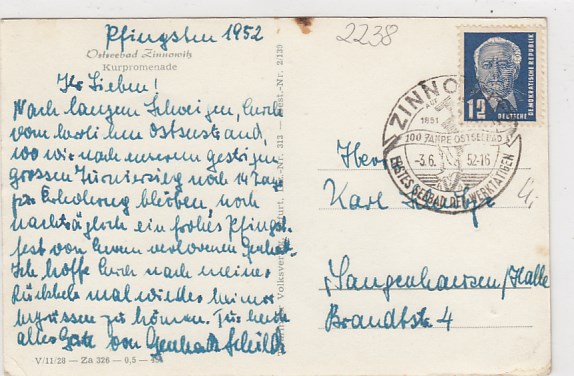 Pfingsten 1952
2238
Ostseebad Zinnowitz
Kurpromenade
Ihr Lieben!
Nach langem Schweigen, Euch
vom herrlichen Ostseestrand,
wo wir nach unserem gestrigen
grossen Turniersieg noch 14 Tage
zur Erholung bleiben noch
nachträglich ein frohes Pfingst-
fest von Eurem verlorenen
Ich hoffe Euch nach meiner
Rückkehr mal wieder bei mir
begrüssen zu können. Für heute
alles Gute von Gerhard Schild
V/11/28 — Za 326 — 0,5 —
Best.-Nr. 2/139
313
Volksver
12
DEUTSCHE
DEMOKRATISCHE REPUBLIK
ZINNO
AUF
1851
100 JAHRE OSTSEEBAD
-3.6. 52-16
ERSTES SEEBAD DER WERKTÄTIGEN
Herrn
Karl
Sangerhausen/Halle
Brandtstr. 4